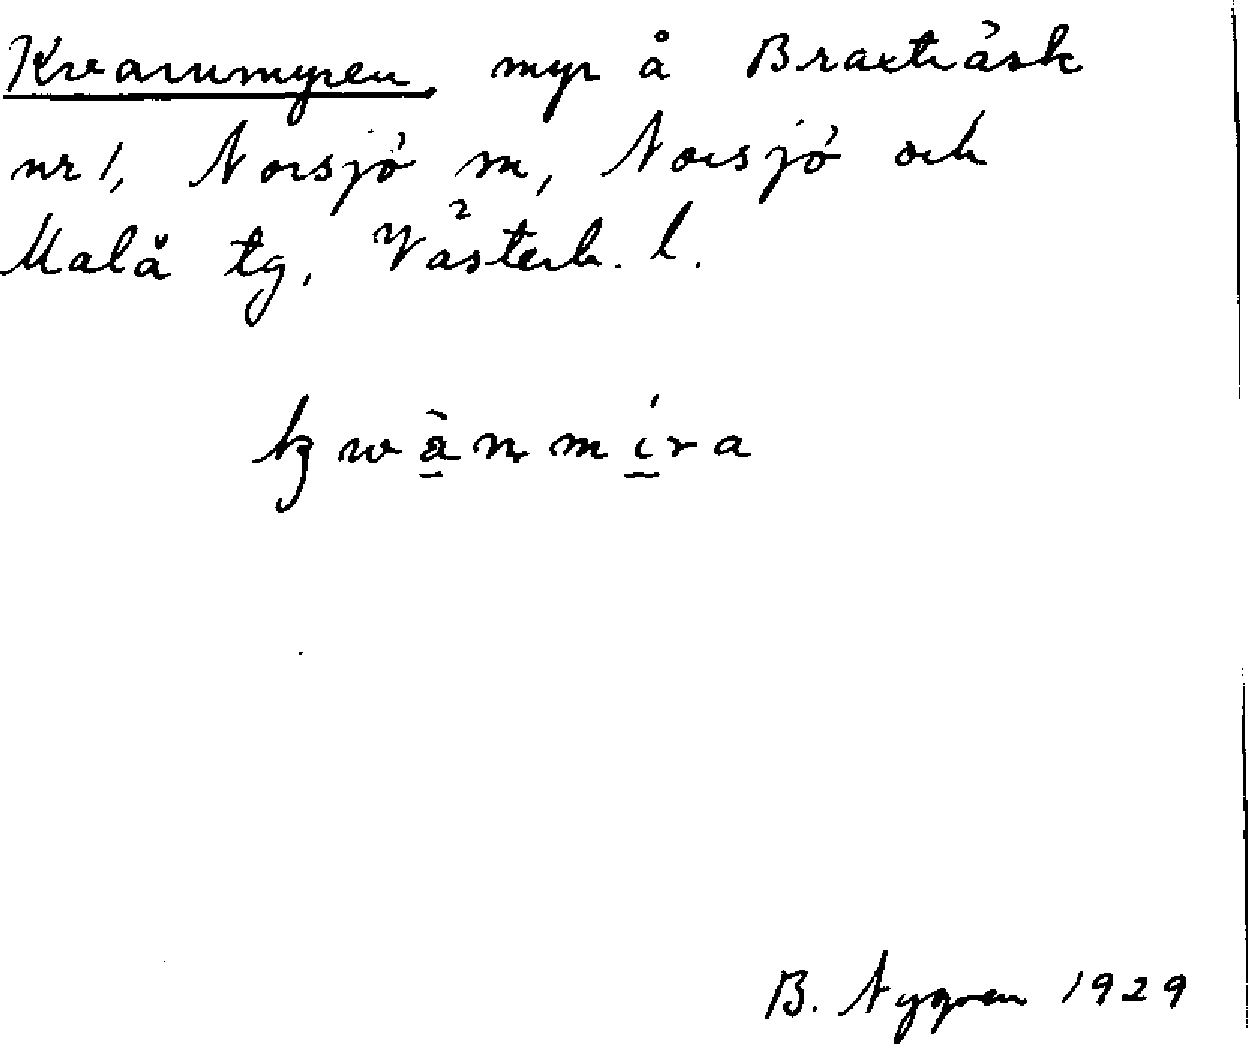 Kvarnmyren, myr å Braxträsk
nr 1, Norsjö sn, Norsjö och
Malå tg, Västerb. l.
kwànmíra
B. Nygren 1929